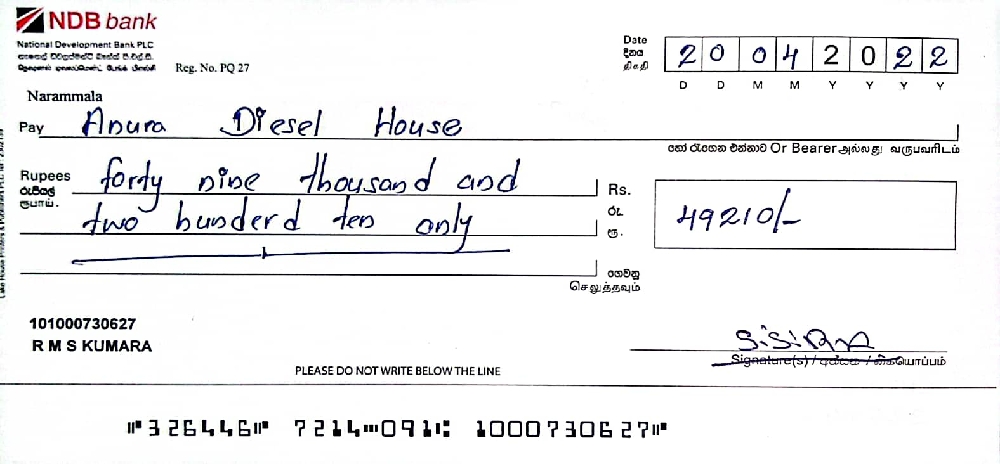 NDB bank
National Development Bank PLC
Reg. No. PQ 27
Date
දිනය
திகதி
2 0 0 4 2 0 2 2
D D M M Y Y Y Y
Narammala
Pay Anura Diesel House
හෝ රැගෙන එන්නාට Or Bearer அல்லது வருபவரிடம்
Rupees forty nine thousand and
රුපියල්
ரூபாய். two hunderd ten only
Rs.
රු.
ரூ.
49210/-
ගෙවනු
செலுத்தவும்
101000730627
R M S KUMARA
Sisira
Signature(s) / අත්සන / கையொப்பம்
PLEASE DO NOT WRITE BELOW THE LINE
⑈326446⑈ 7214⑉091⑆ 1000730627⑈